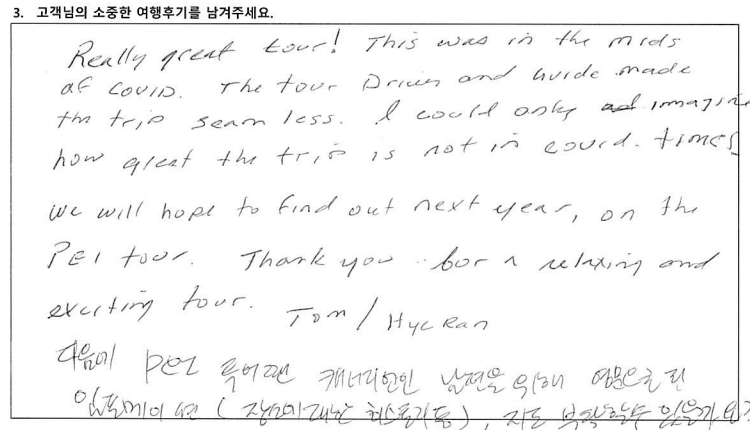 3. 고객님의 소중한 여행후기를 남겨주세요.
Really great tour! This was in the mids
of COVID. The tour Driver and Guide made
the trip seam less. I could only imagine
how great the trip is not in covid. times
we will hope to find out next year, on the
PEI tour. Thank you for a relaxing and
exciting tour. Tom / Hye Ran
다음에 투어땐 캐네디언인 남편을 위해 영문으로 된